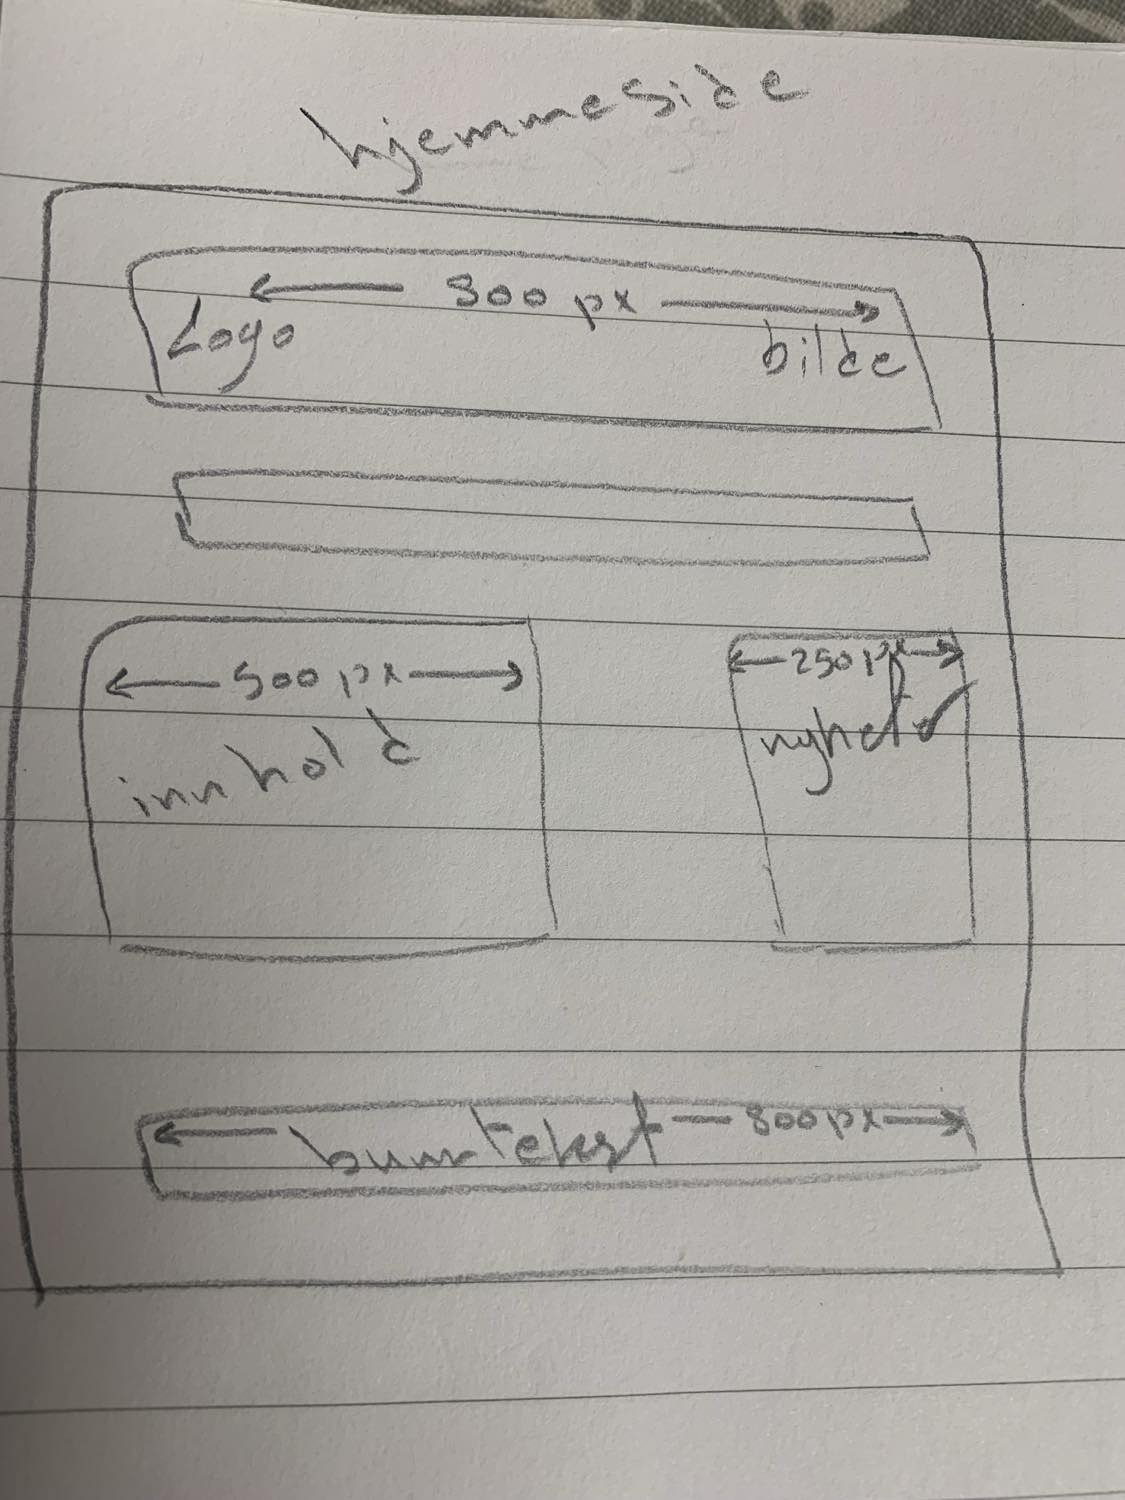 hjemmeside
800 px
Logo
bilde
500 px
250 px
innhold
nyheter
bunntekst 800px